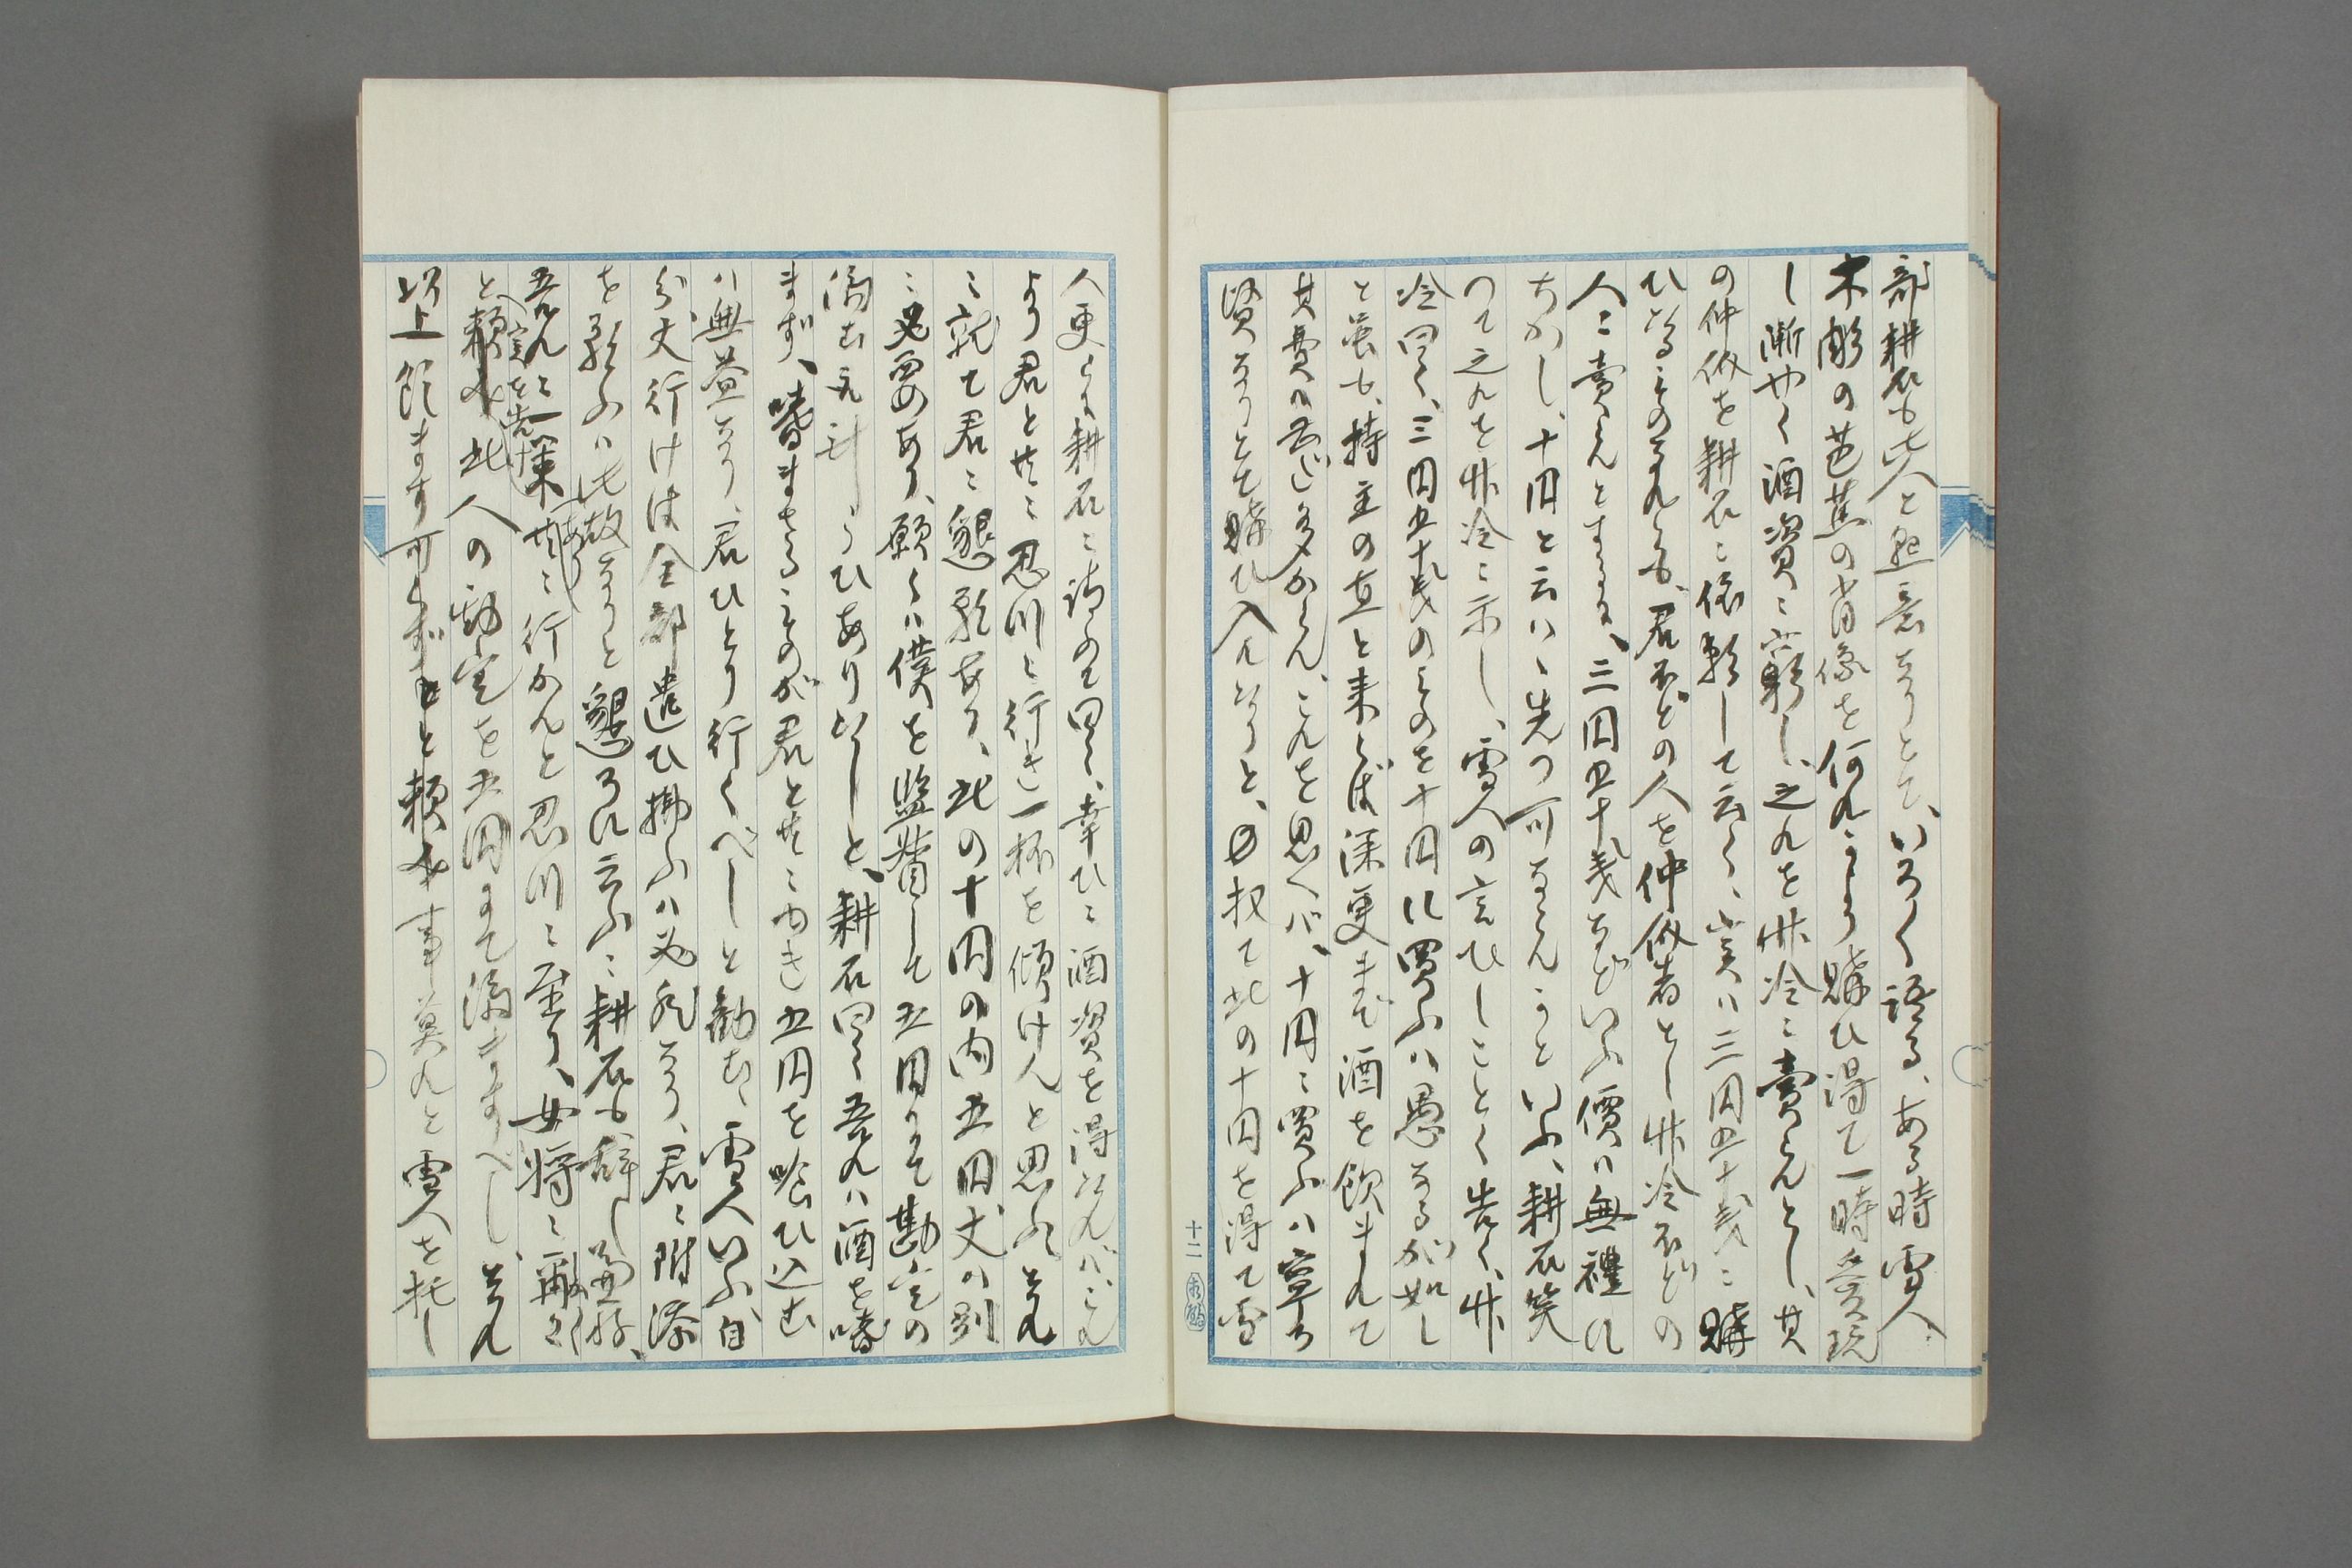 部耕石も此人と懇意なりとて、いろ〱語る、ある時雪人
木彫の芭蕉の背像を何れよりか購ひ得て一時愛玩
し漸やく酒資に窮し、之れを竹冷に売らんとし、其
の仲介を耕石に依頼して云く、実ハ三円五十銭に購
ひたるものなれども、君などの人を仲介者とし竹冷などの
人に売らんとするに、三円五十銭などいふ價ハ無禮に
ちかし、十円と云はゝ先つ可ならんかといふ、耕石笑
つて之れを竹冷に示し、雪人の言ひしことく告く、竹
冷曰く、三円五十銭のものを十円に買ふハ愚なるが如し
と雖も、持主の直と来らば深更まで酒を飲まれて
其費ハ甚だ多からん、これを思へバ、十円に買ふハ寧ろ
賢なりとて購ひ入れたりと、扨て此の十円を得て雪
十二
人更らに耕石に謂つて曰く、幸ひに酒資を得たれバ、これ
より君と共に忍川に行き一杯を傾けんと思ふ、それ
に就て君に懇願あり、此の十円の内五円丈ハ別
に必要あり、願くハ僕を監督して五円にて勘定の
済む様計らひありたしと、耕石曰く吾れハ酒を嗜
まず、嗜まざるものが君と共にゆき五円を喰ひ込む
ハ無益なり、君ひとり行くべしと勧む、雪人いふ、自
分丈行けば全部遣ひ掃ふハ必然なり、君に附添
を頼ふハ此故なりと懇ろに云ふに耕石も辞し兼ね、
吾れに一策あり共に行かんと忍川に至り、女将に
と頼み此人の勘定を五円まて済ますべし、それ
以上飲ます可らずと頼み事莫れと雪人を托し